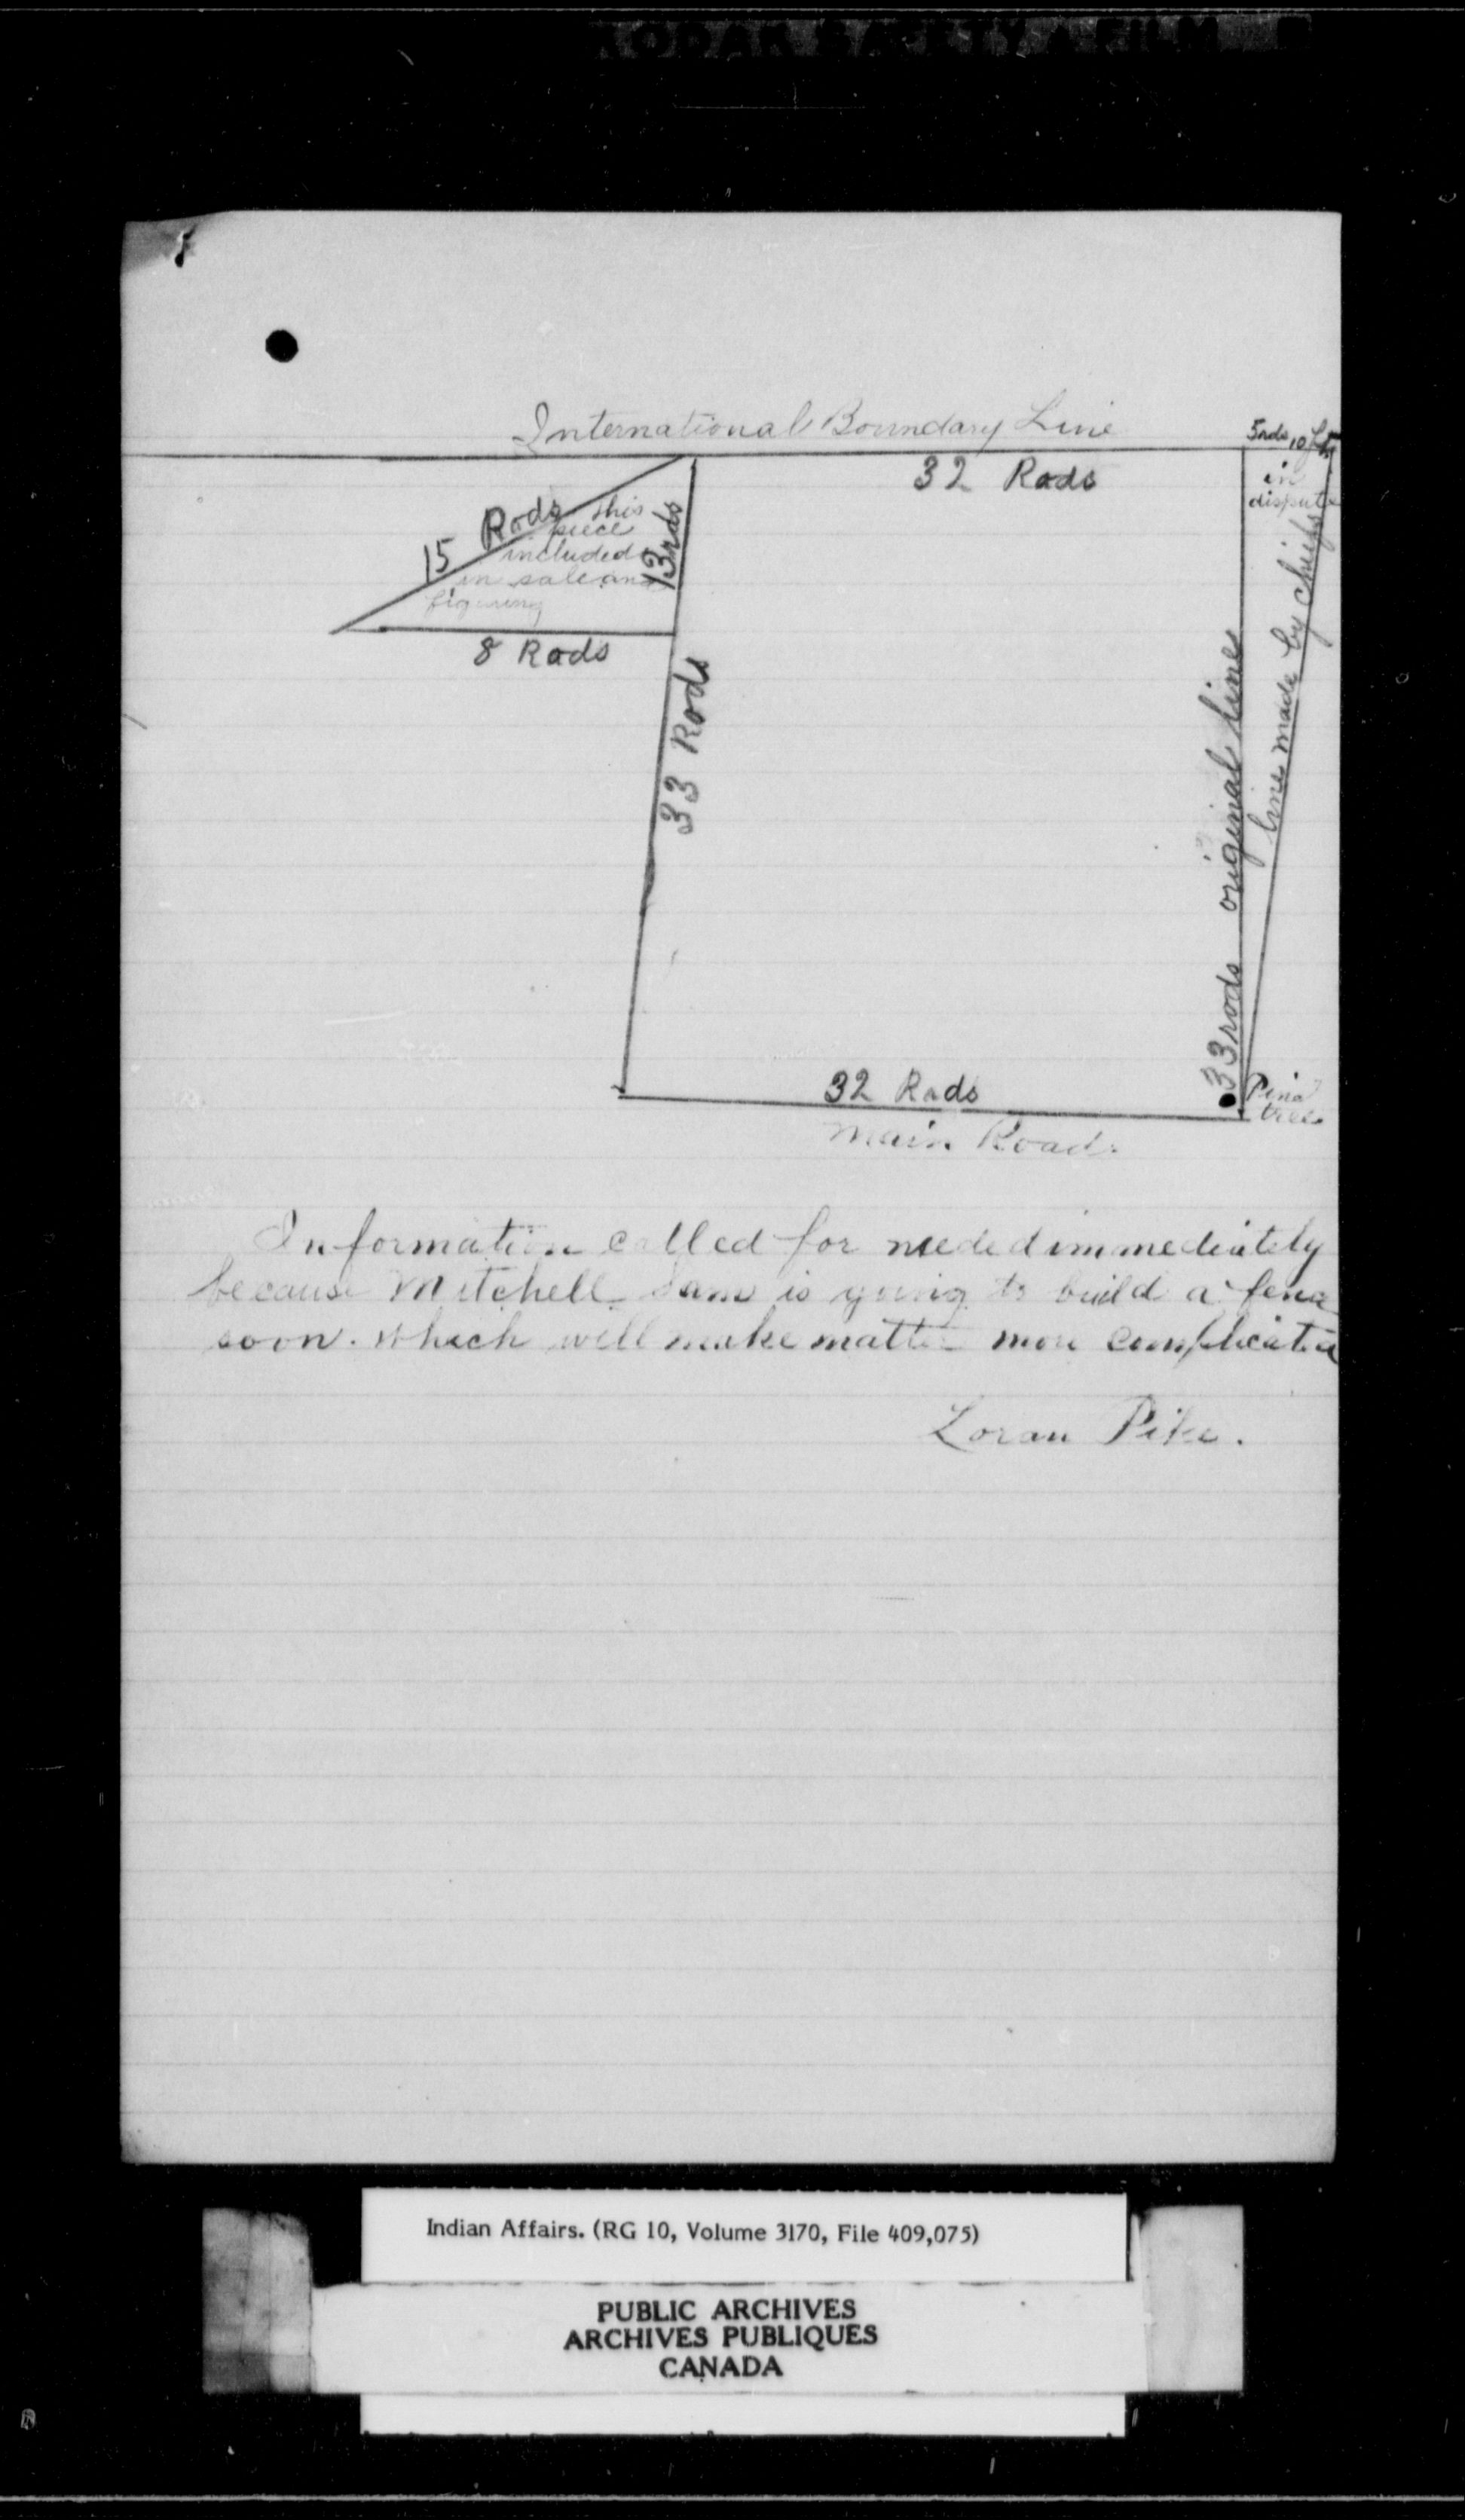 KODAK SAFETY A FILM
International Boundary Line
5rds 10ft
32 Rods
in
dispute
15 Rods
this
piece
included
in sale and
figuring
13rds
8 Rods
33 Rods
33rods original line
line made by chiefs
Pine
tree
32 Rods
Main Road.
Information called for needed immediately
because Mitchell Sam is going to build a fence
soon. which will make matter more complicated
Loran Pike.
Indian Affairs. (RG 10, Volume 3170, File 409,075)
PUBLIC ARCHIVES
ARCHIVES PUBLIQUES
CANADA